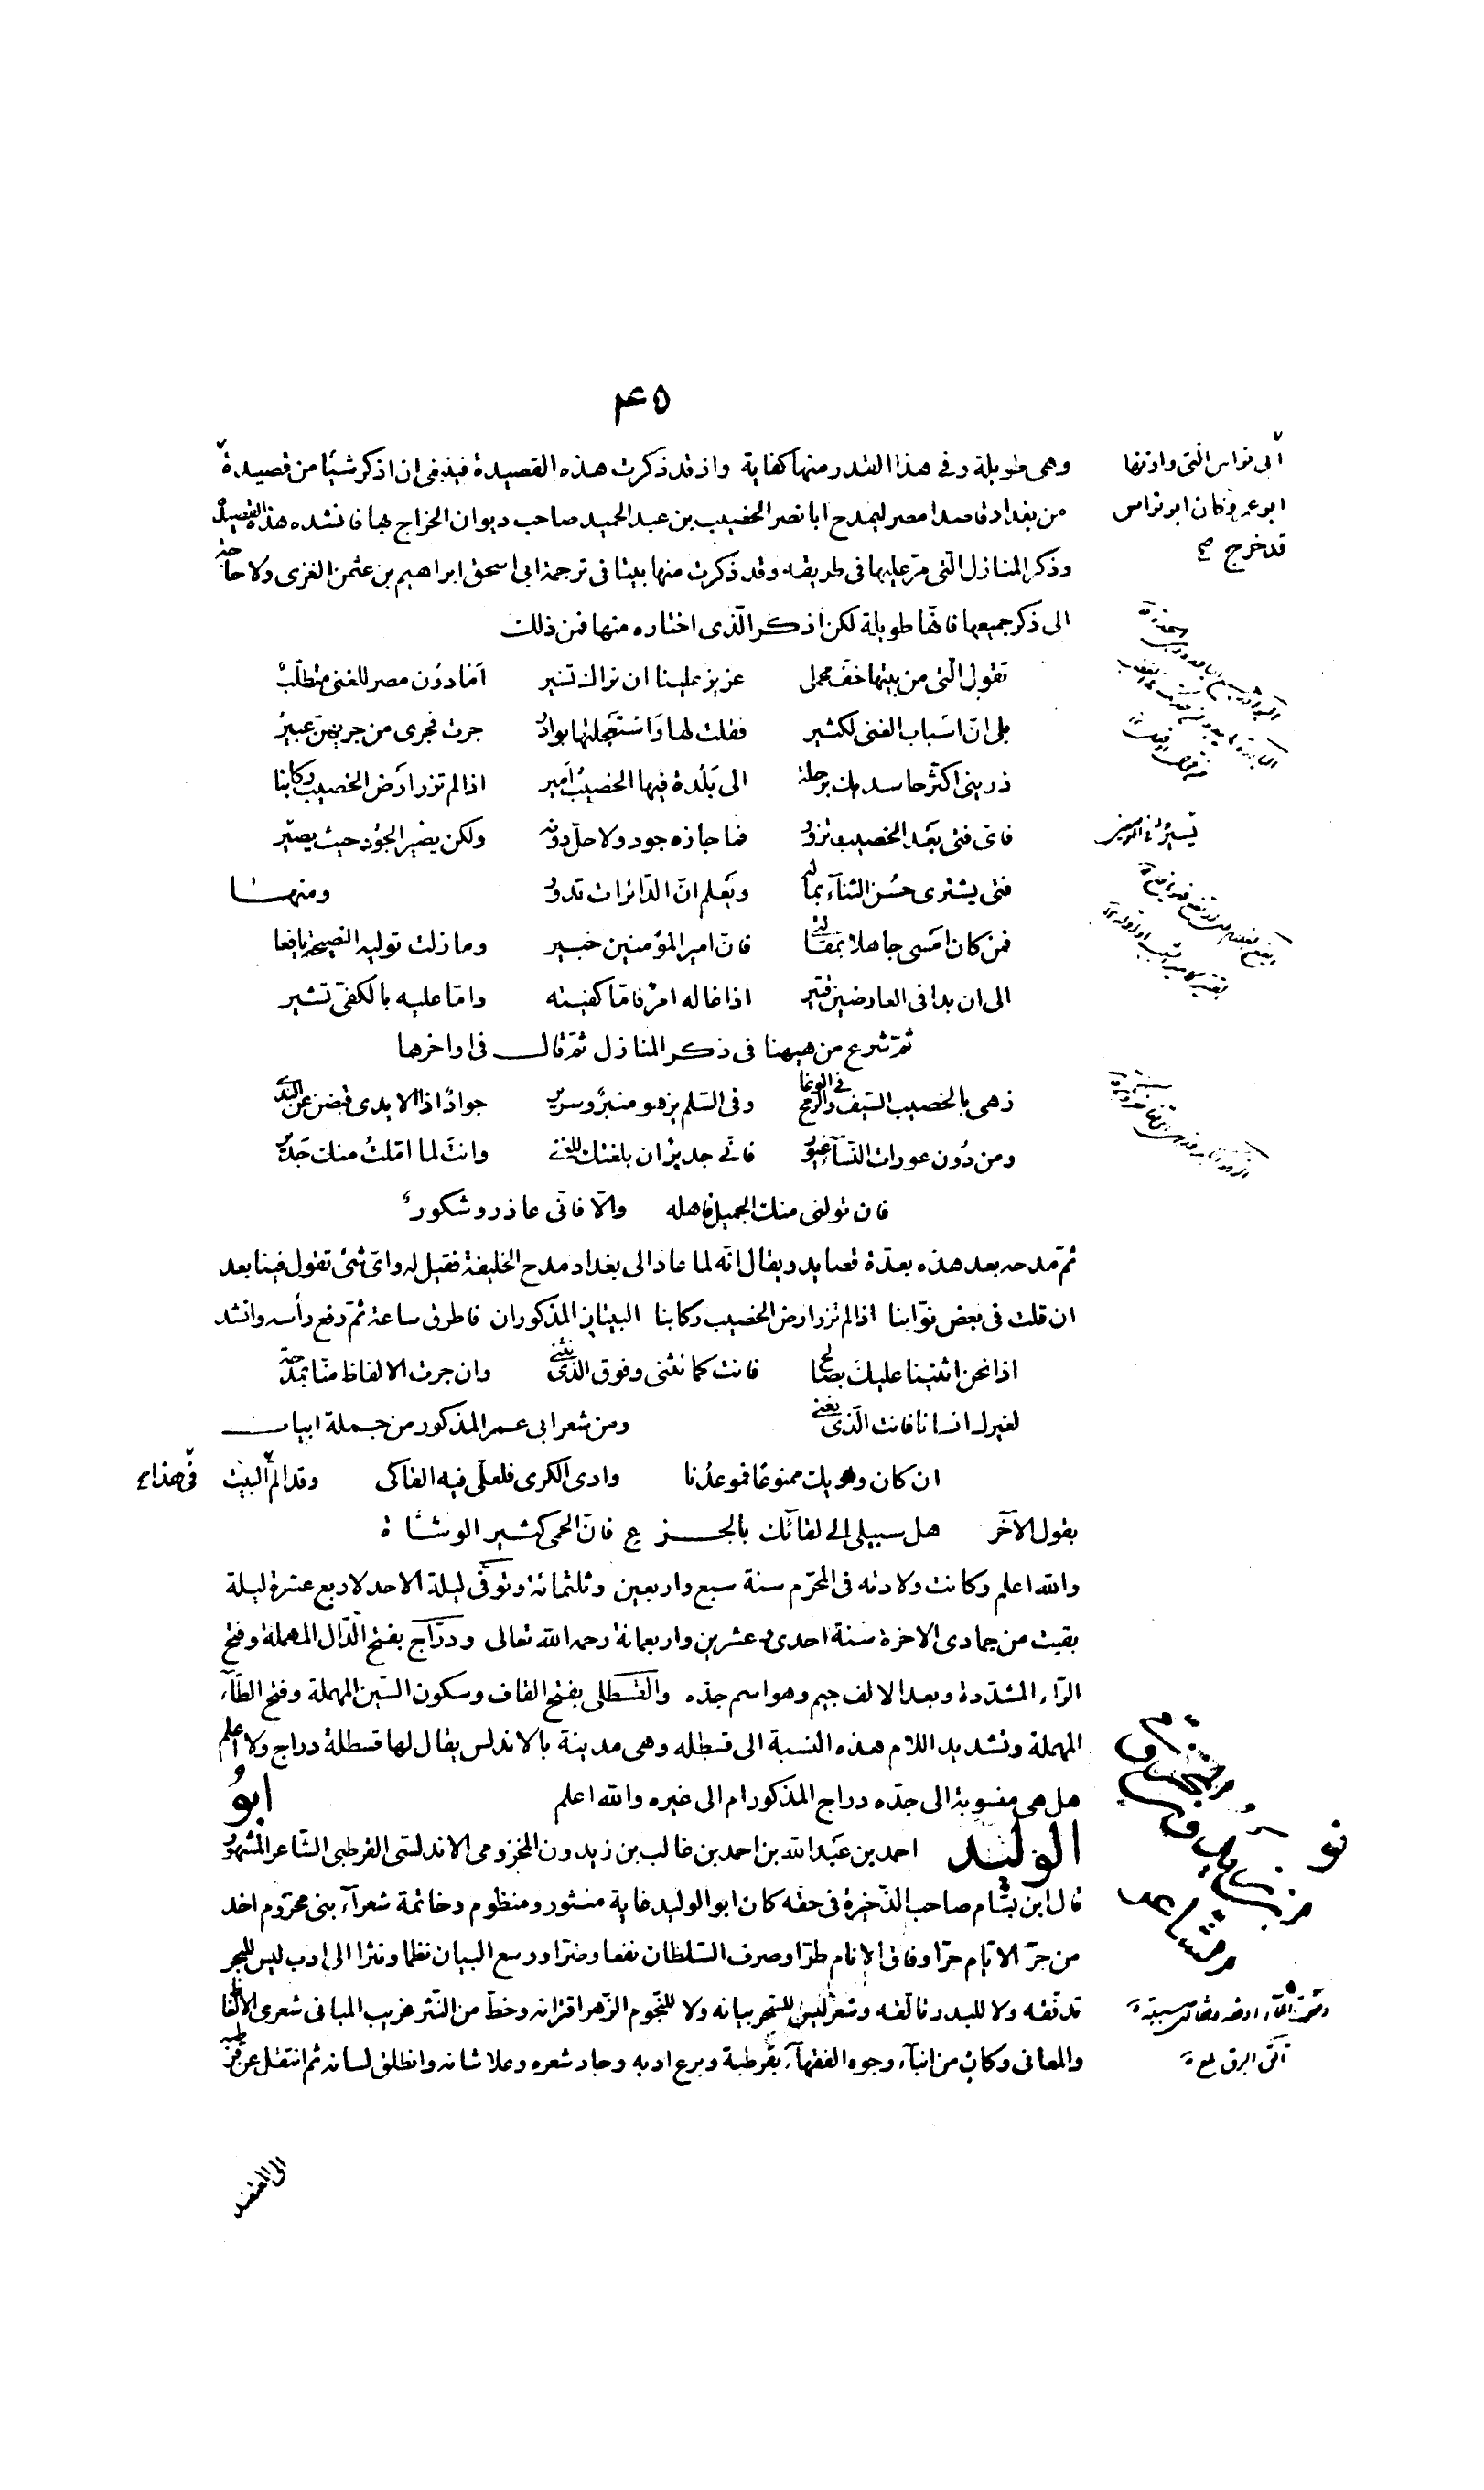 ٤٥
وهى طويلة وفى هذا القدر منها كفاية واذ قد ذكرت هذه القصيدة فينبغى ان اذكر شيئا من قصيدة
ابى نواس التى وازنها
ابو عمر وكان ابو نواس
قد خرج صح
من بغداد قاصدا مصر ليمدح ابا نصر الخصيب بن عبد الحميد صاحب ديوان الخراج بها فانشده هذه القصيدة
وذكر المنازل التى مر عليها فى طريقه وقد ذكرت منها بيتا فى ترجمة ابى اسحق ابراهيم بن عثمن الغزى ولا حاجة
الى ذكر جميعها فانها طويلة لكن اذكر الذى اختاره منها فمن ذلك
تقول التى من بيتها خف محملى عزيز علينا ان نراك تسير اما دون مصر للغنى متطلب
بلى ان اسباب الغنى لكثير فقلت لها واستعجلتها بوادر جرت فجرى من جريهن عبير
ذرينى اكثر حاسديك برحلة الى بلدة فيها الخصيب امير اذا لم تزر ارض الخصيب ركابنا
فاى فتى بعد الخصيب تزور فما جازه جود ولا حل دونه ولكن يصير الجود حيث يصير
فتى يشترى حسن الثناء بماله ويعلم ان الدائرات تدور ومنها
فمن كان امسى جاهلا بمقالتى فان امير المؤمنين خبير وما زلت توليه النصيحة يافعا
الى ان بدا فى العارضين قتير اذا غاله امر فاما كفيته واما عليه بالكفى تشير
ثم شرع من هيهنا فى ذكر المنازل ثم قال فى اواخرها
زهى بالخصيب السيف والرمح فى الوغا وفى السلم يزهو منبر وسرير جواد اذا الايدى قبضن عن الندى
ومن دون عورات النساء غيور فانى جدير ان بلغتك للغنى وانت لما املت منك جدير
فان تولنى منك الجميل فاهله والا فانى عاذر وشكور
ثم مدحه بعد هذه بعدة قصايد ويقال انه لما عاد الى بغداد مدح الخليفة فقيل له واى شئ تقول فينا بعد
ان قلت فى بعض نوابنا اذا لم تزر ارض الخصيب ركابنا البيتان المذكوران فاطرق ساعة ثم رفع رأسه وانشد
اذا نحن اثنينا عليك بصالح فانت كما نثنى وفوق الذى نثنى وان جرت الالفاظ منا بمدحة
لغيرك انسانا فانت الذى نعنى ومن شعر ابى عمر المذكور من جملة ابيات
ان كان واديك ممنوعا فموعدنا وادى الكرى فلعلى فيه القاكى وقد الم البيت فى هذا صح
بقول الآخر هل سبيلى الى لقائك بالجزع فان الحمى كثير الوشاة
والله اعلم وكانت ولادته فى المحرم سنة سبع واربعين وثلثمائة وتوفى ليلة الاحد لاربع عشرة ليلة
بقيت من جمادى الاخرة سنة احدى وعشرين واربعمائة رحمه الله تعالى ودراج بفتح الدال المهملة وفتح
الراء المشددة وبعد الالف جيم وهو اسم جده والقسطلى بفتح القاف وسكون السين المهملة وفتح الطاء
المهملة وتشديد اللام هذه النسبة الى قسطله وهى مدينة بالاندلس يقال لها قسطلة دراج ولا اعلم
هل هى منسوبة الى جده دراج المذكور ام الى غيره والله اعلم ابو
الوليد احمد بن عبد الله بن احمد بن غالب بن زيدون المخزومى الاندلسى القرطبى الشاعر المشهور
قال ابن بسام صاحب الذخيرة فى حقه كان ابو الوليد غاية منثور ومنظوم وخاتمة شعراء بنى مخزوم اخذ
من حر الايام حرا وفاق الانام طرا وصرف السلطان نفعا وضرا ووسع البيان نظما ونثرا الى ادب ليس للبحر
تدفقه ولا للبدر تالقه وشعر ليس للسحر بيانه ولا للنجوم الزهر اقترانه وحظ من النثر غريب المبانى شعرى الالفاظ
والمعانى وكان من ابناء وجوه الفقهاء بقرطبة وبرع ادبه وجاد شعره وعلا شانه وانطلق لسانه ثم انتقل عن قرطبة
تألق البرق لمع
الى المعتضد